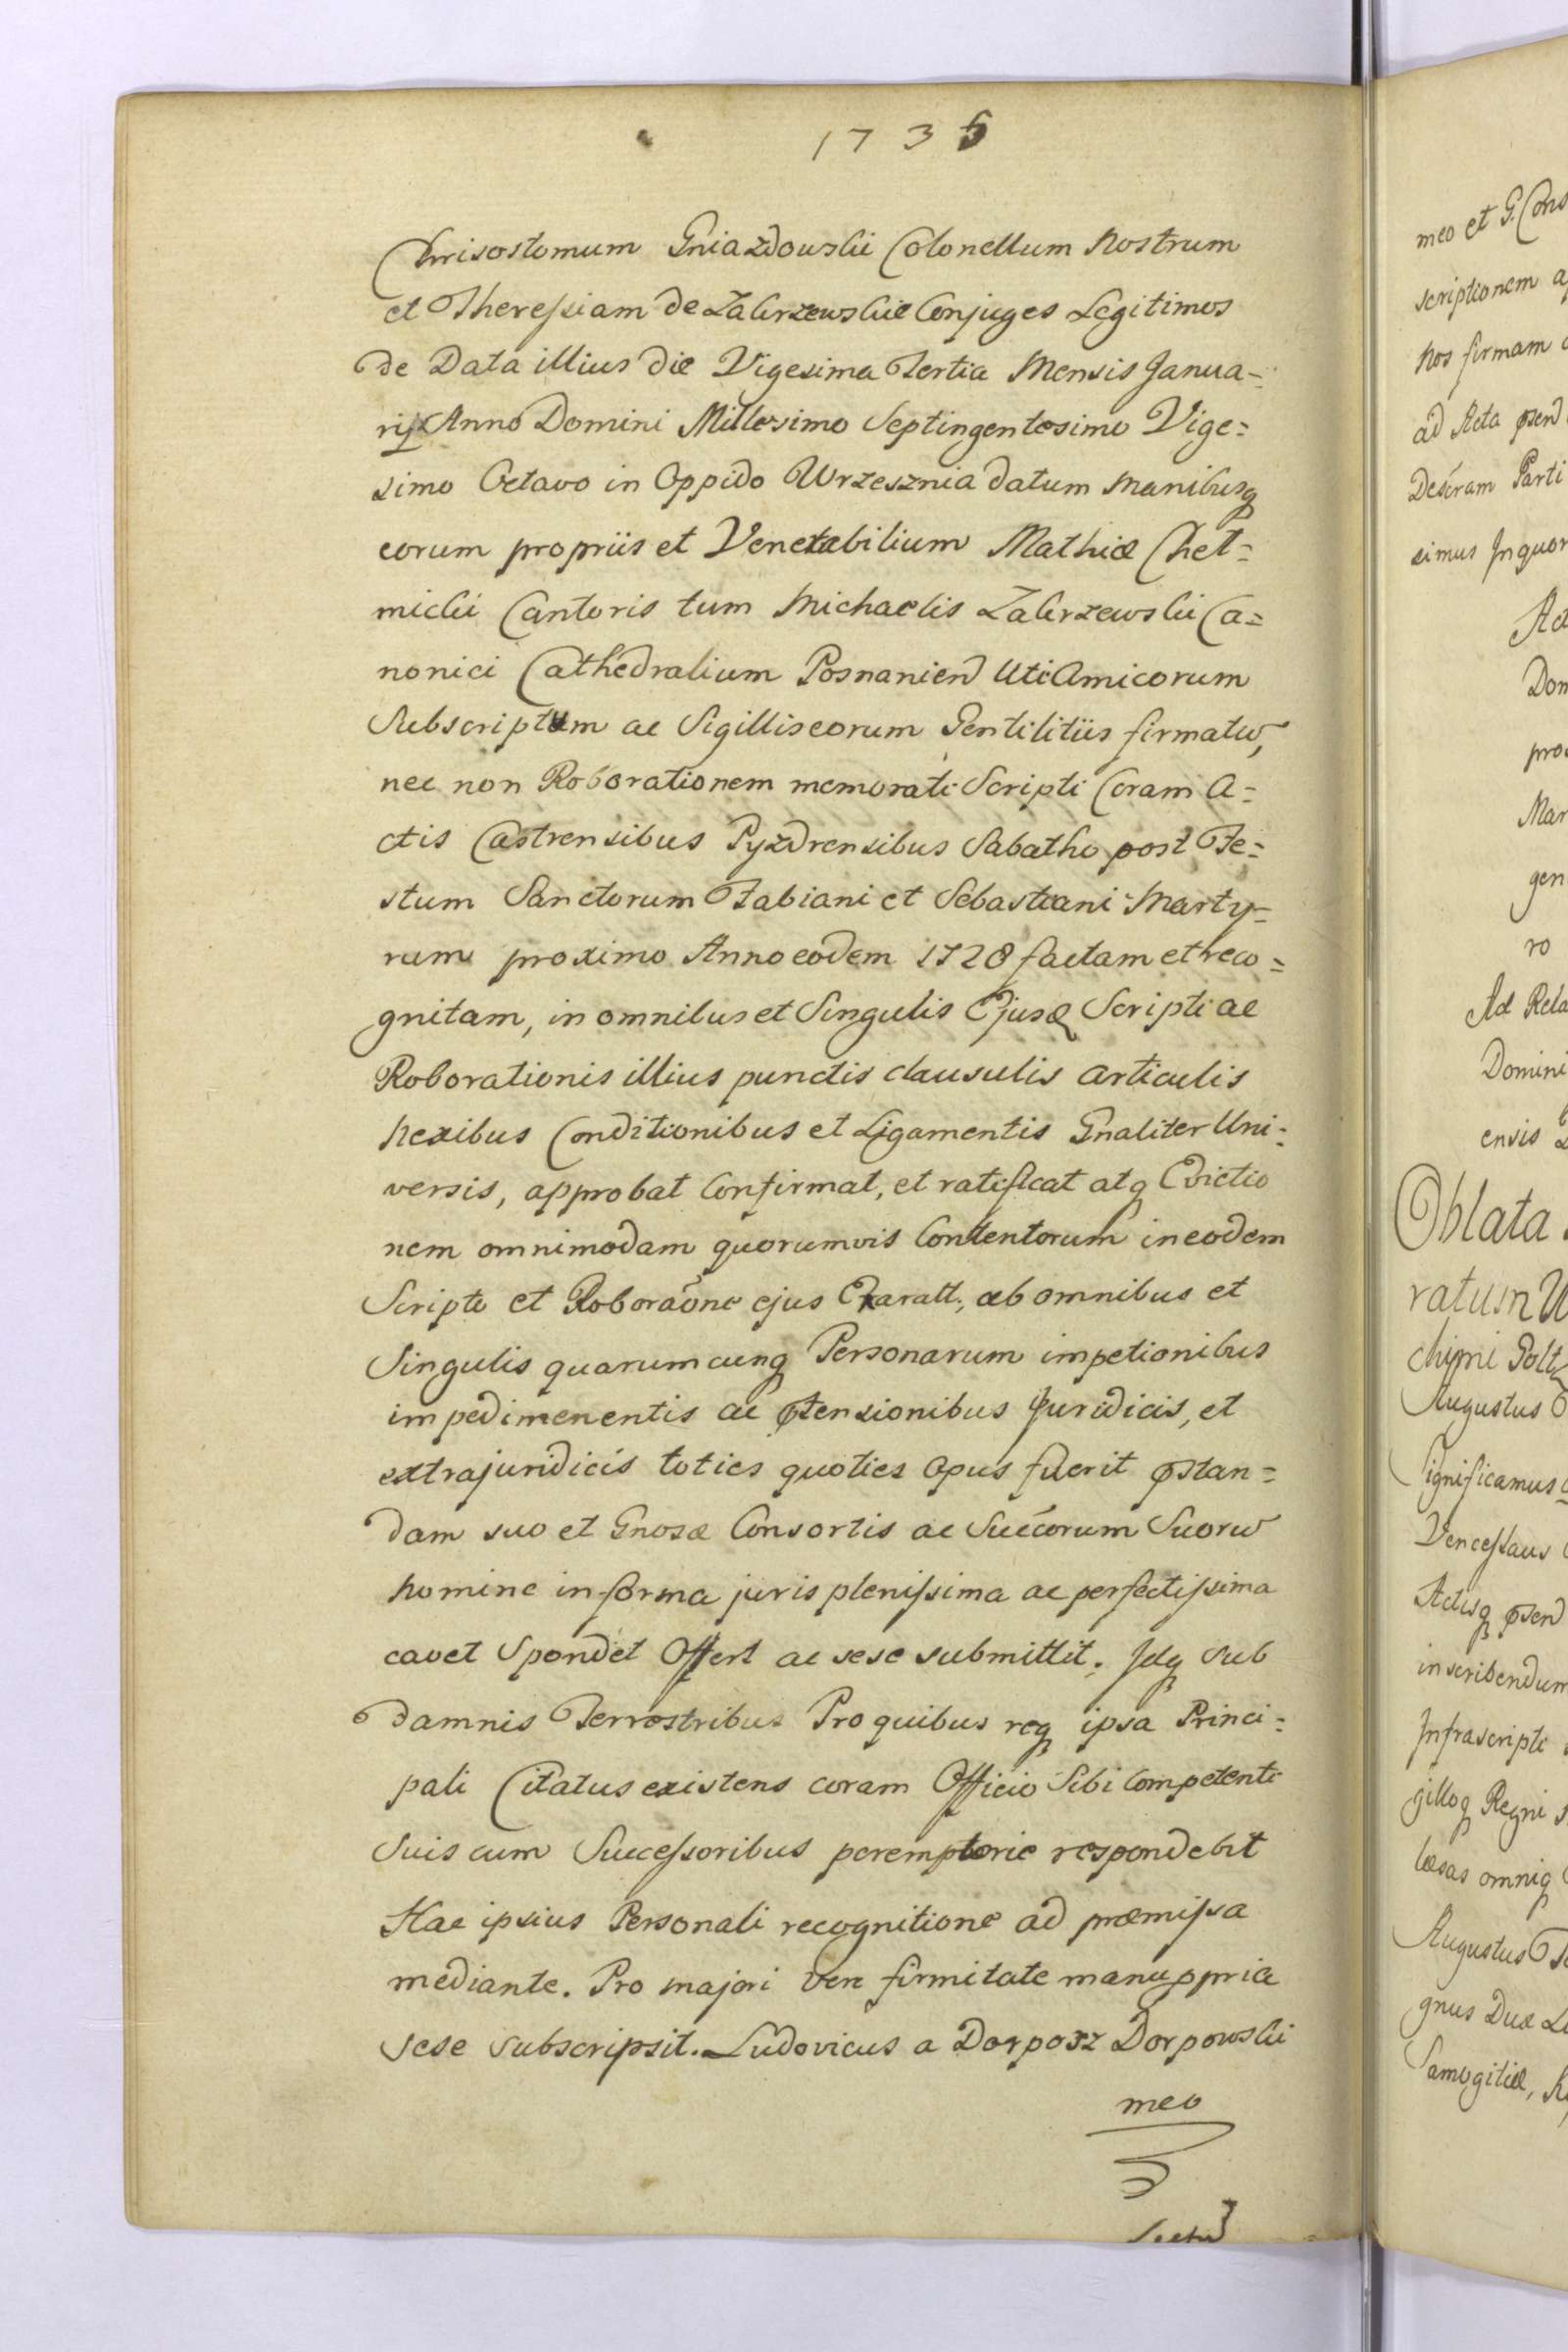 1735
Chrisostomum Gniazdowski Colonellum Nostrum
et Theressiam de Zakrzewskie Conjuges Legitimos
de Data illius die Vigesima Tertia Mensis Janua-
rij Anno Domini Millesimo Septingentesimo Vige=
simo Octavo in Oppido Wrzesznia datum Manibusq
eorum propriis et Venerabilium Mathiæ Chet=
micki Cantoris tum Michaelis Zakrzewski Ca=
nonici Cathedralium Posnanien Uti Amicorum
Subscriptum ac Sigillis eorum Gentilitiis firmatu,
nec non Roborationem memorati Scripti Coram A=
ctis Castrensibus Pyzdrensibus Sabatho post Fe=
stum Sanctorum Fabiani et Sebastiani Marty=
rum proximo Anno eodem 1728 factam et reco=
gnitam, in omnibus et Singulis Ejusd Scripti ac
Roborationis illius punctis clausulis articulis
nexibus Conditionibus et Ligamentis Gnaliter Uni=
versis, approbat Confirmat, et ratificat atq Evictio
nem omnimodam quorumvis Contentorum in eodem
Scripto et Roboraône ejus Exaratt., ab omnibus et
Singulis quarumcunq Personarum impetionibus
impedimenentis ac ꝓtensionibus Juridicis, et
extrajuridicis toties quoties Opus fuerit ꝓstan=
dam suo et Gnosæ Consortis ac Succorum Suoru
nomine in forma juris plenissima ac perfectissima
cavet Spondet Offert ac sese submittit. Idq sub
damnis Terrestribus Pro quibus req ipsa Princi=
pali Citatus existens coram Officio Sibi Competenti
Suis cum Successoribus peremptorie respondebit
Hac ipsius Personali recognitione ad præmissa
mediante. Pro majori vere firmitate manu ppria
sese subscripsit. Ludovicus a Dorposz Dorpowski
meo
meo et G. Cons
scriptionem
nos firmam
ad Acta ꝓsen
Desiram Parti
simus In quor
Act
Dom
pro
Mar
gen
ro
Ad Rela
Domini
ensis
Oblata
ratum
chimi Polt
Augustus
Significamus
Venceslaus
Actisq ꝓsen
inscribendum
Infrascripti
gilloq Regni
læsas omniq
Augustus
gnus Dux Li
Samogitiæ,